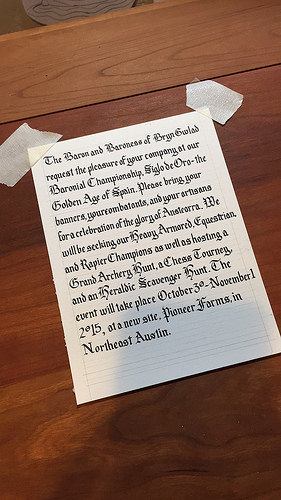 The Baron and Baroness of Bryn Gwlad
request the pleasure of your company at our
Baronial Championship, Siglo de Oro-the
Golden Age of Spain. Please bring your
banners, your combatants, and your artisans
for a celebration of the glory of Ansteorra. We
will be seeking our Heavy Armored, Equestrian,
and Rapier Champions as well as hosting a
Grand Archery Hunt, a Chess Tourney,
and an Heraldic Scavenger Hunt. The
event will take place October 30-November 1
2015, at a new site, Pioneer Farms, in
Northeast Austin.